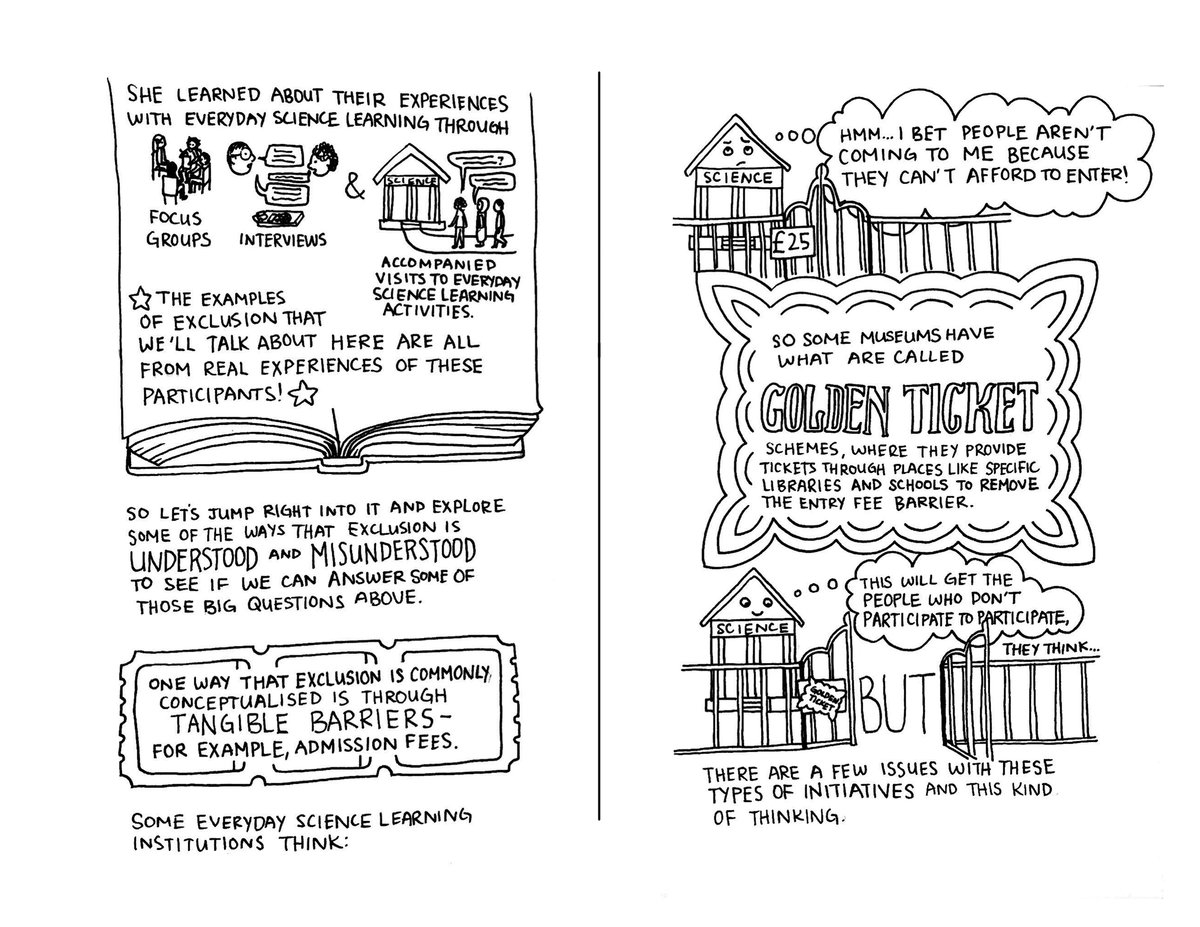 SHE LEARNED ABOUT THEIR EXPERIENCES
WITH EVERYDAY SCIENCE LEARNING THROUGH
FOCUS
GROUPS
INTERVIEWS
&
SCIENCE
?
ACCOMPANIED
VISITS TO EVERYDAY
SCIENCE LEARNING
ACTIVITIES.
THE EXAMPLES
OF EXCLUSION THAT
WE'LL TALK ABOUT HERE ARE ALL
FROM REAL EXPERIENCES OF THESE
PARTICIPANTS!
SO LET'S JUMP RIGHT INTO IT AND EXPLORE
SOME OF THE WAYS THAT EXCLUSION IS
UNDERSTOOD AND MISUNDERSTOOD
TO SEE IF WE CAN ANSWER SOME OF
THOSE BIG QUESTIONS ABOVE.
ONE WAY THAT EXCLUSION IS COMMONLY
CONCEPTUALISED IS THROUGH
TANGIBLE BARRIERS-
FOR EXAMPLE, ADMISSION FEES.
SOME EVERYDAY SCIENCE LEARNING
INSTITUTIONS THINK:
HMM... I BET PEOPLE AREN'T
COMING TO ME BECAUSE
THEY CAN'T AFFORD TO ENTER!
SCIENCE
£25
SO SOME MUSEUMS HAVE
WHAT ARE CALLED
GOLDEN TICKET
SCHEMES, WHERE THEY PROVIDE
TICKETS THROUGH PLACES LIKE SPECIFIC
LIBRARIES AND SCHOOLS TO REMOVE
THE ENTRY FEE BARRIER.
THIS WILL GET THE
PEOPLE WHO DON'T
PARTICIPATE TO PARTICIPATE,
THEY THINK...
SCIENCE
GOLDEN
TICKET
BUT
THERE ARE A FEW ISSUES WITH THESE
TYPES OF INITIATIVES AND THIS KIND
OF THINKING.